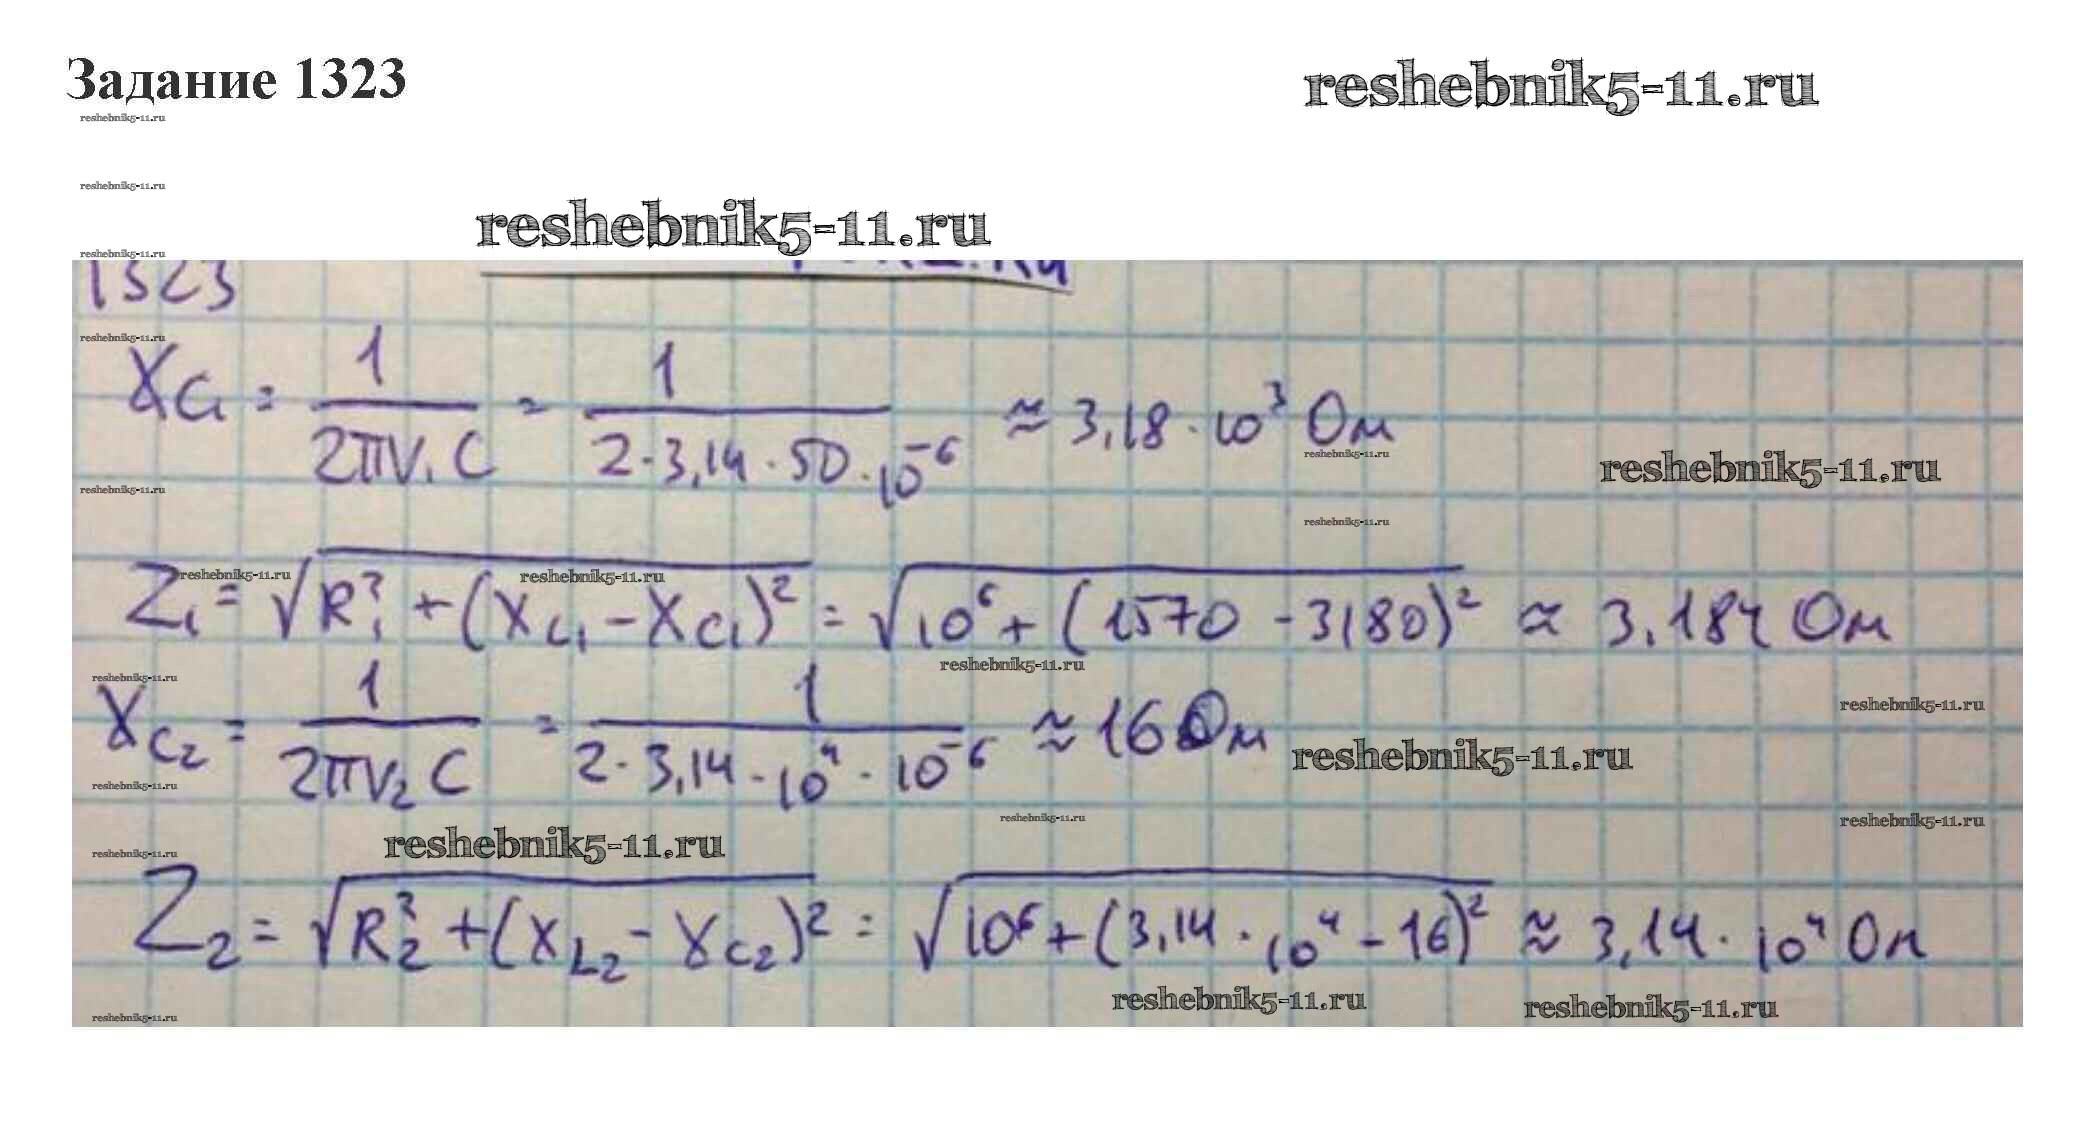 Задание 1323
reshebnik5-11.ru
reshebnik5-11.ru
reshebnik5-11.ru
reshebnik5-11.ru
reshebnik5-11.ru
1323
reshebnik5-11.ru
X_C₁ = 1/(2πν₁C) = 1/(2·3,14·50·10⁻⁶) ≈ 3,18·10³ Ом
reshebnik5-11.ru
reshebnik5-11.ru
reshebnik5-11.ru
reshebnik5-11.ru
reshebnik5-11.ru
reshebnik5-11.ru
Z₁ = √(R₁² + (X_L₁ − X_C₁)²) = √(10⁶ + (1570 − 3180)²) ≈ 3,184 Ом
reshebnik5-11.ru
reshebnik5-11.ru
reshebnik5-11.ru
X_C₂ = 1/(2πν₂C) = 1/(2·3,14·10⁴·10⁻⁶) ≈ 16 Ом
reshebnik5-11.ru
reshebnik5-11.ru
reshebnik5-11.ru
reshebnik5-11.ru
reshebnik5-11.ru
reshebnik5-11.ru
Z₂ = √(R₂² + (X_L₂ − X_C₂)²) = √(10⁶ + (3,14·10⁴ − 16)²) ≈ 3,14·10⁴ Ом
reshebnik5-11.ru
reshebnik5-11.ru
reshebnik5-11.ru